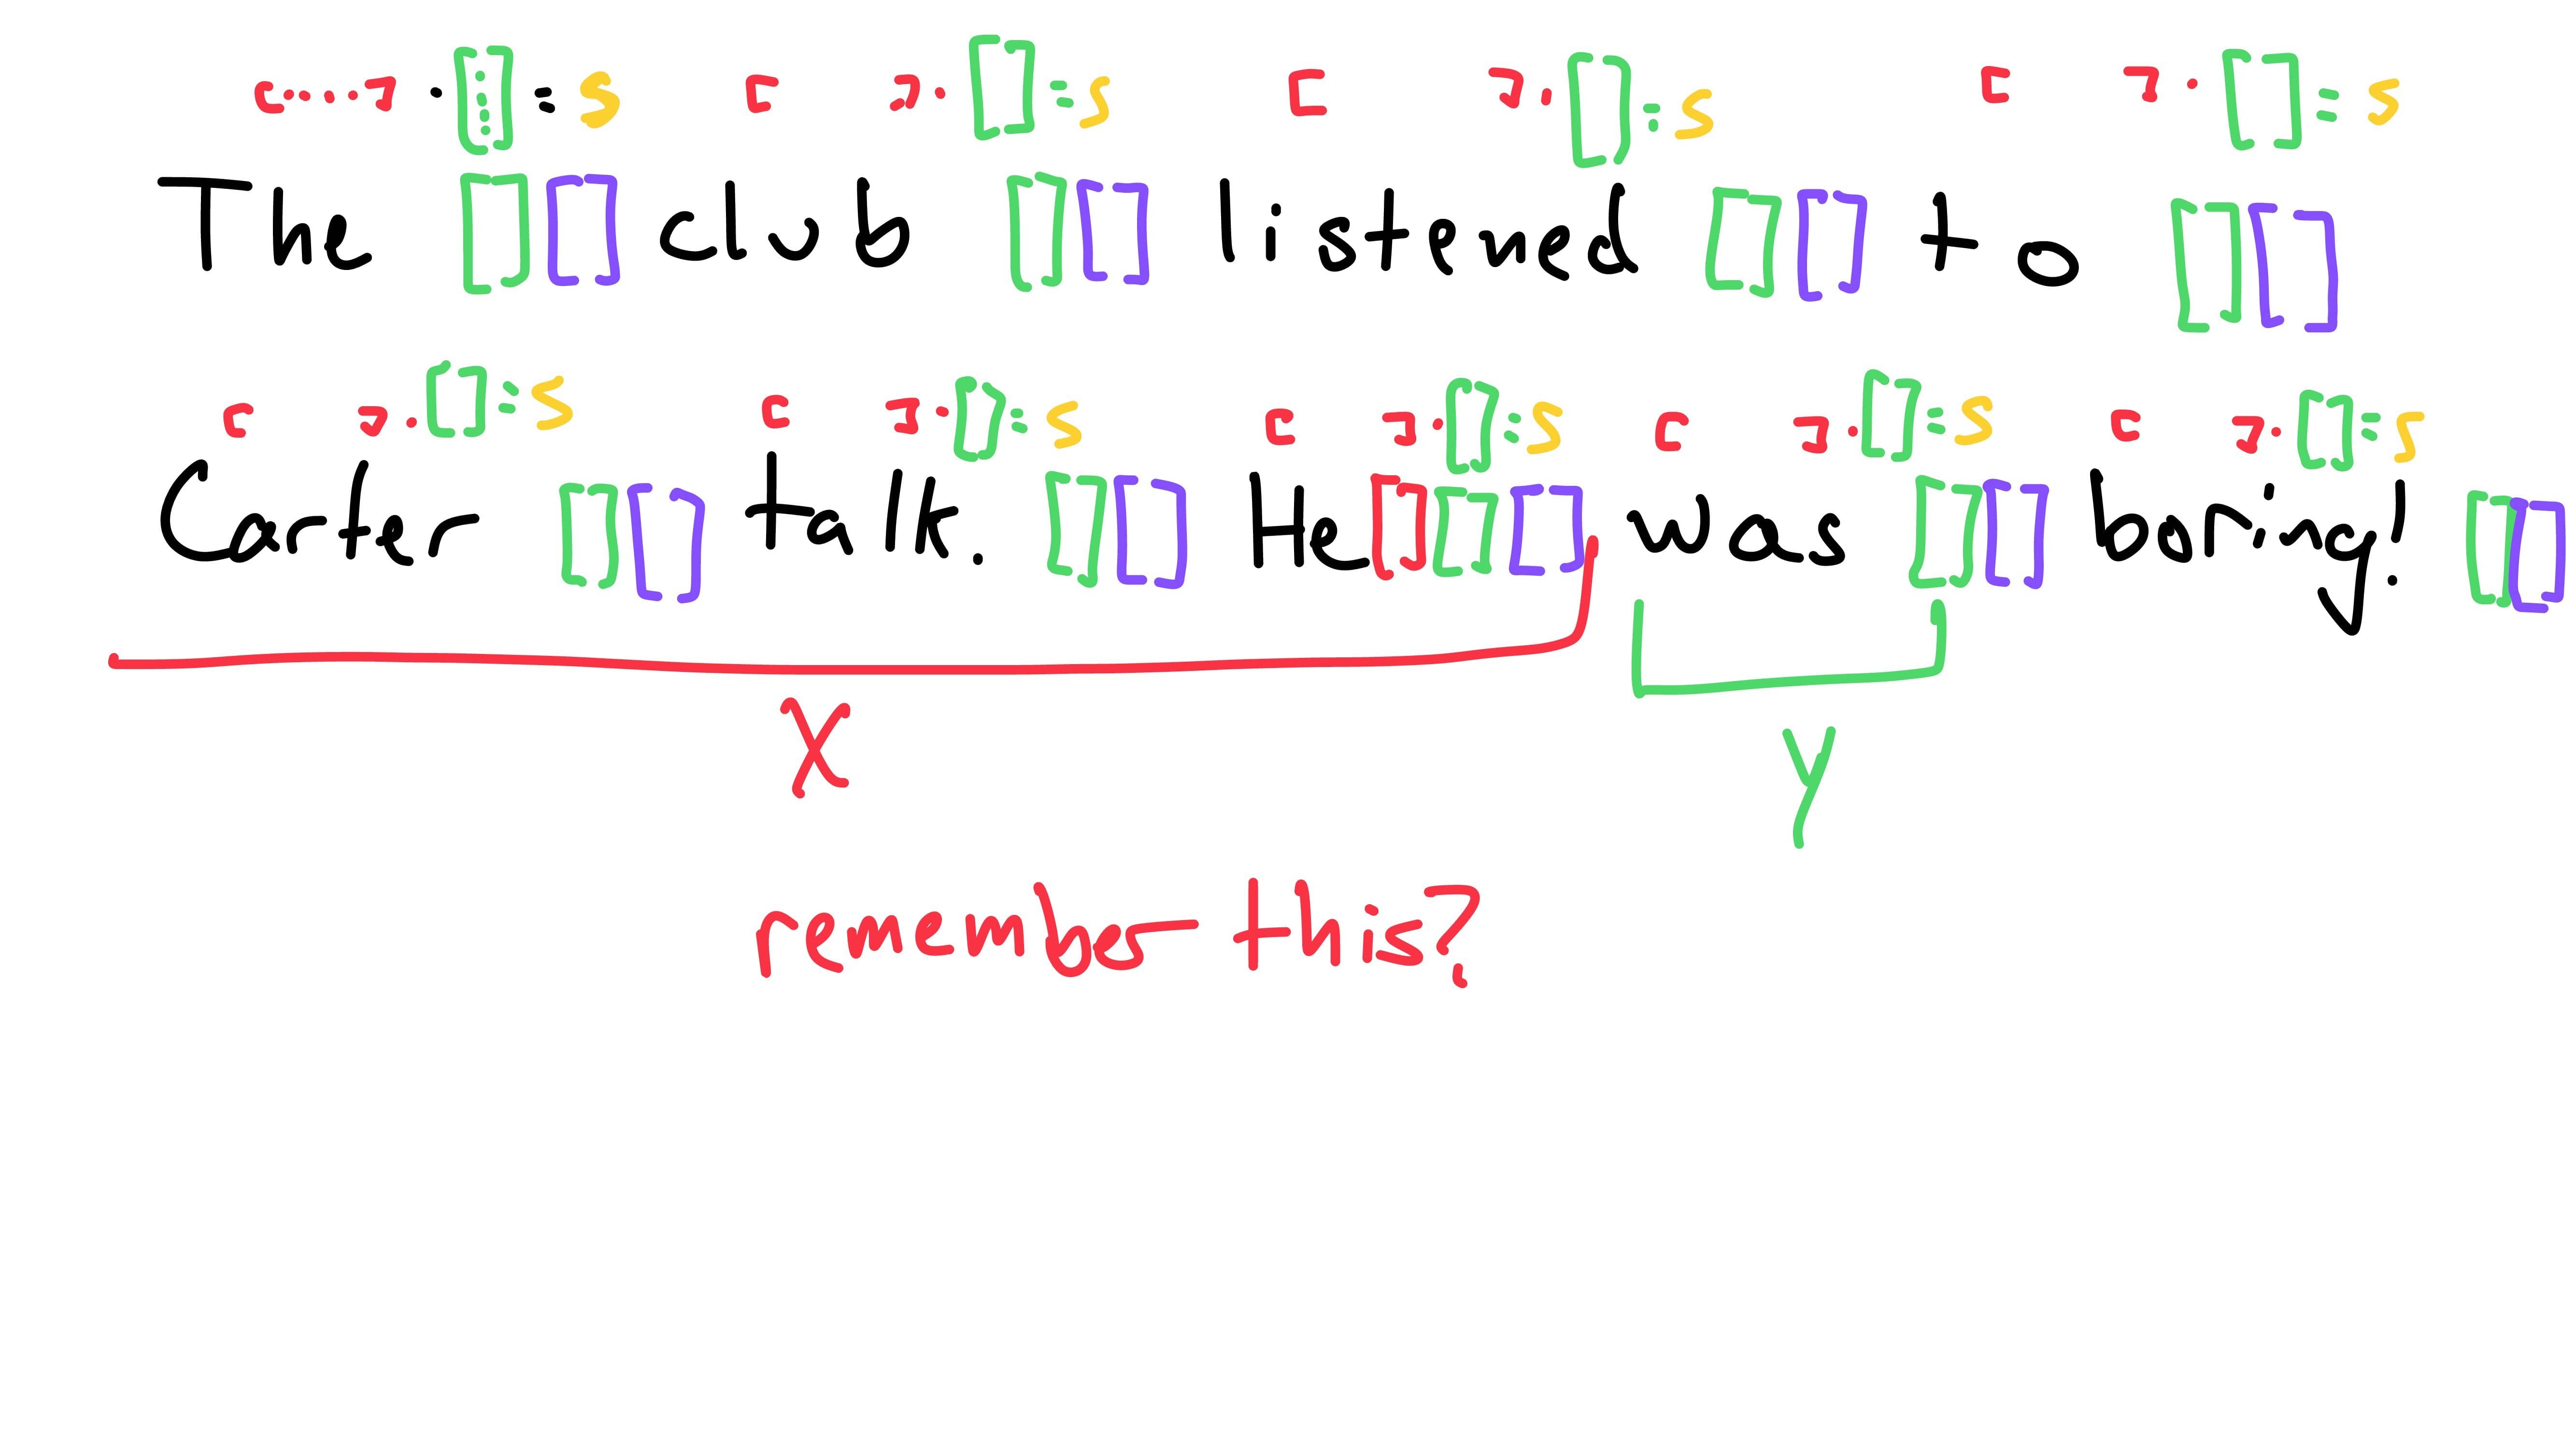 [.....] · [⋮] = S [ ] · [ ] = S [ ] · [ ] = S [ ] · [ ] = S
The [ ] [ ] club [ ] [ ] listened [ ] [ ] to [ ] [ ]
[ ] · [ ] = S [ ] · [ ] = S [ ] · [ ] = S [ ] · [ ] = S [ ] · [ ] = S
Carter [ ] [ ] talk. [ ] [ ] He [ ] [ ] [ ] was [ ] [ ] boring! [ ] [ ]
X y
remember this?